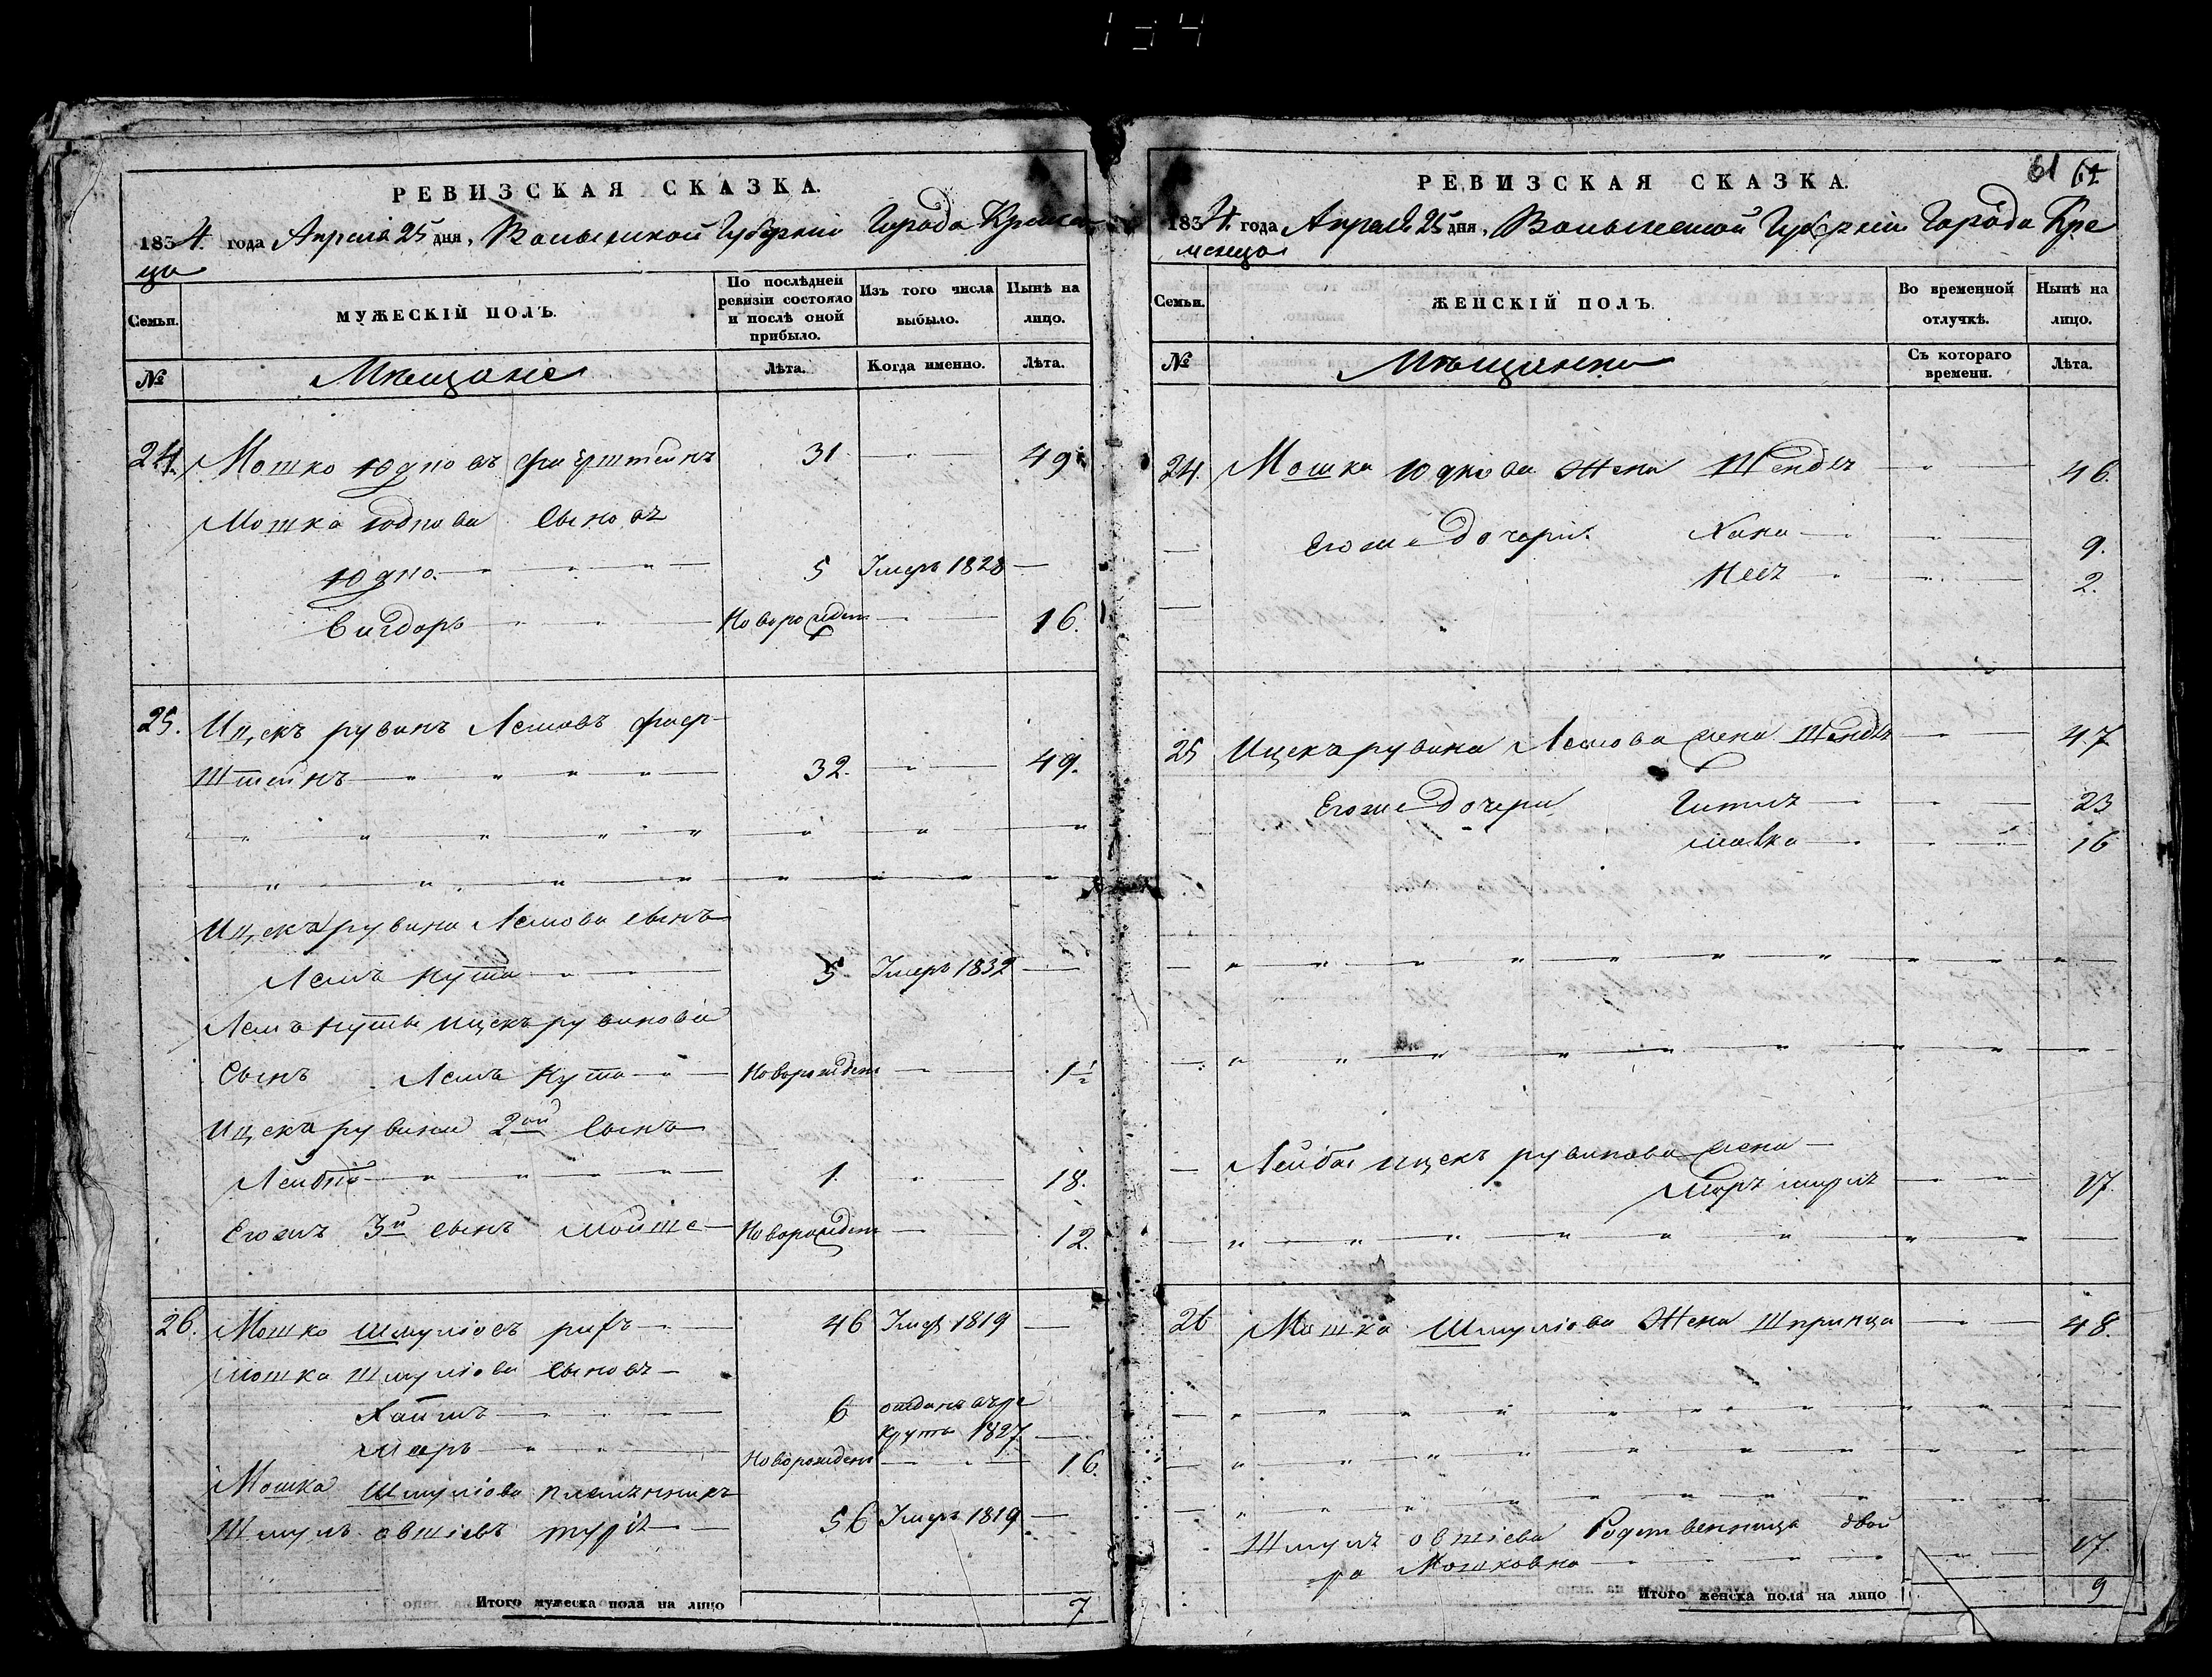 134
РЕВИЗСКАЯ СКАЗКА.
1834 года Апреля 25 дня, Волынской Губерніи Города Кременца
Семьи.
МУЖЕСКІЙ ПОЛЪ.
По послѣдней ревизіи состояло и послѣ оной прибыло.
Изъ того числа выбыло.
Нынѣ на лицо.
№
Мещане
Лѣта.
Когда именно.
Лѣта.
24. Мошко Юдковъ 31 49
Мошка Юдкова сыновъ
Юдко 5 Умеръ 1828
Вигдоръ Новорожден 16.
25. Ицекъ рувинъ Лемовъ фаер-
штейнъ 32. 49.
Ицекъ рувина Лемова сынъ
5 Умеръ 1832
ицекъ рувинова
сынъ Новорожден 1½
Ицека рувина 2ой сынъ
Лейба 1. 18.
Егожъ 3й сынъ мойше Новорожден 12.
26. Мошко Шмуліовъ 46 Умер 1819
Мошка Шмуліова сыновъ
Хаимъ 6 отданъ въ ре
круты 1827
мееръ Новорожден 16.
Мошка Шмуліова племянникъ
Шмуль овшіевъ 56 Умеръ 1819
Итого мужеска пола на лицо 7
61
РЕВИЗСКАЯ СКАЗКА.
1834 года Апреля 25 дня, Волынской Губерніи Города Кре
менца
Семьи.
ЖЕНСКІЙ ПОЛЪ.
Во временной отлучкѣ.
Нынѣ на лицо.
№
Мещанки
Съ котораго времени.
Лѣта.
24. Мошка Юдкова жена Шендль 46.
Егоже дочери Хана 9.
Несъ 2.
25 Ицекъ рувина Лемова жена Шендль 47
Егоже дочери Гитль 23
малка 16
Лейба ицекъ рувинова жена
17
26 Мошка Шмуліова жена Шпринца 48.
Шмуля овшіева Родственница двой
ра Мошковна 17
Итого женска пола на лицо 9